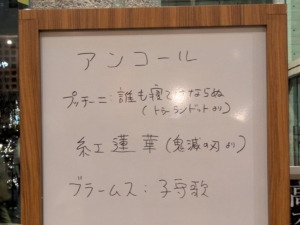 アンコール
プッチーニ:誰も寝てはならぬ
(トゥーランドットより)
紅蓮華(鬼滅の刃より)
ブラームス:子守歌